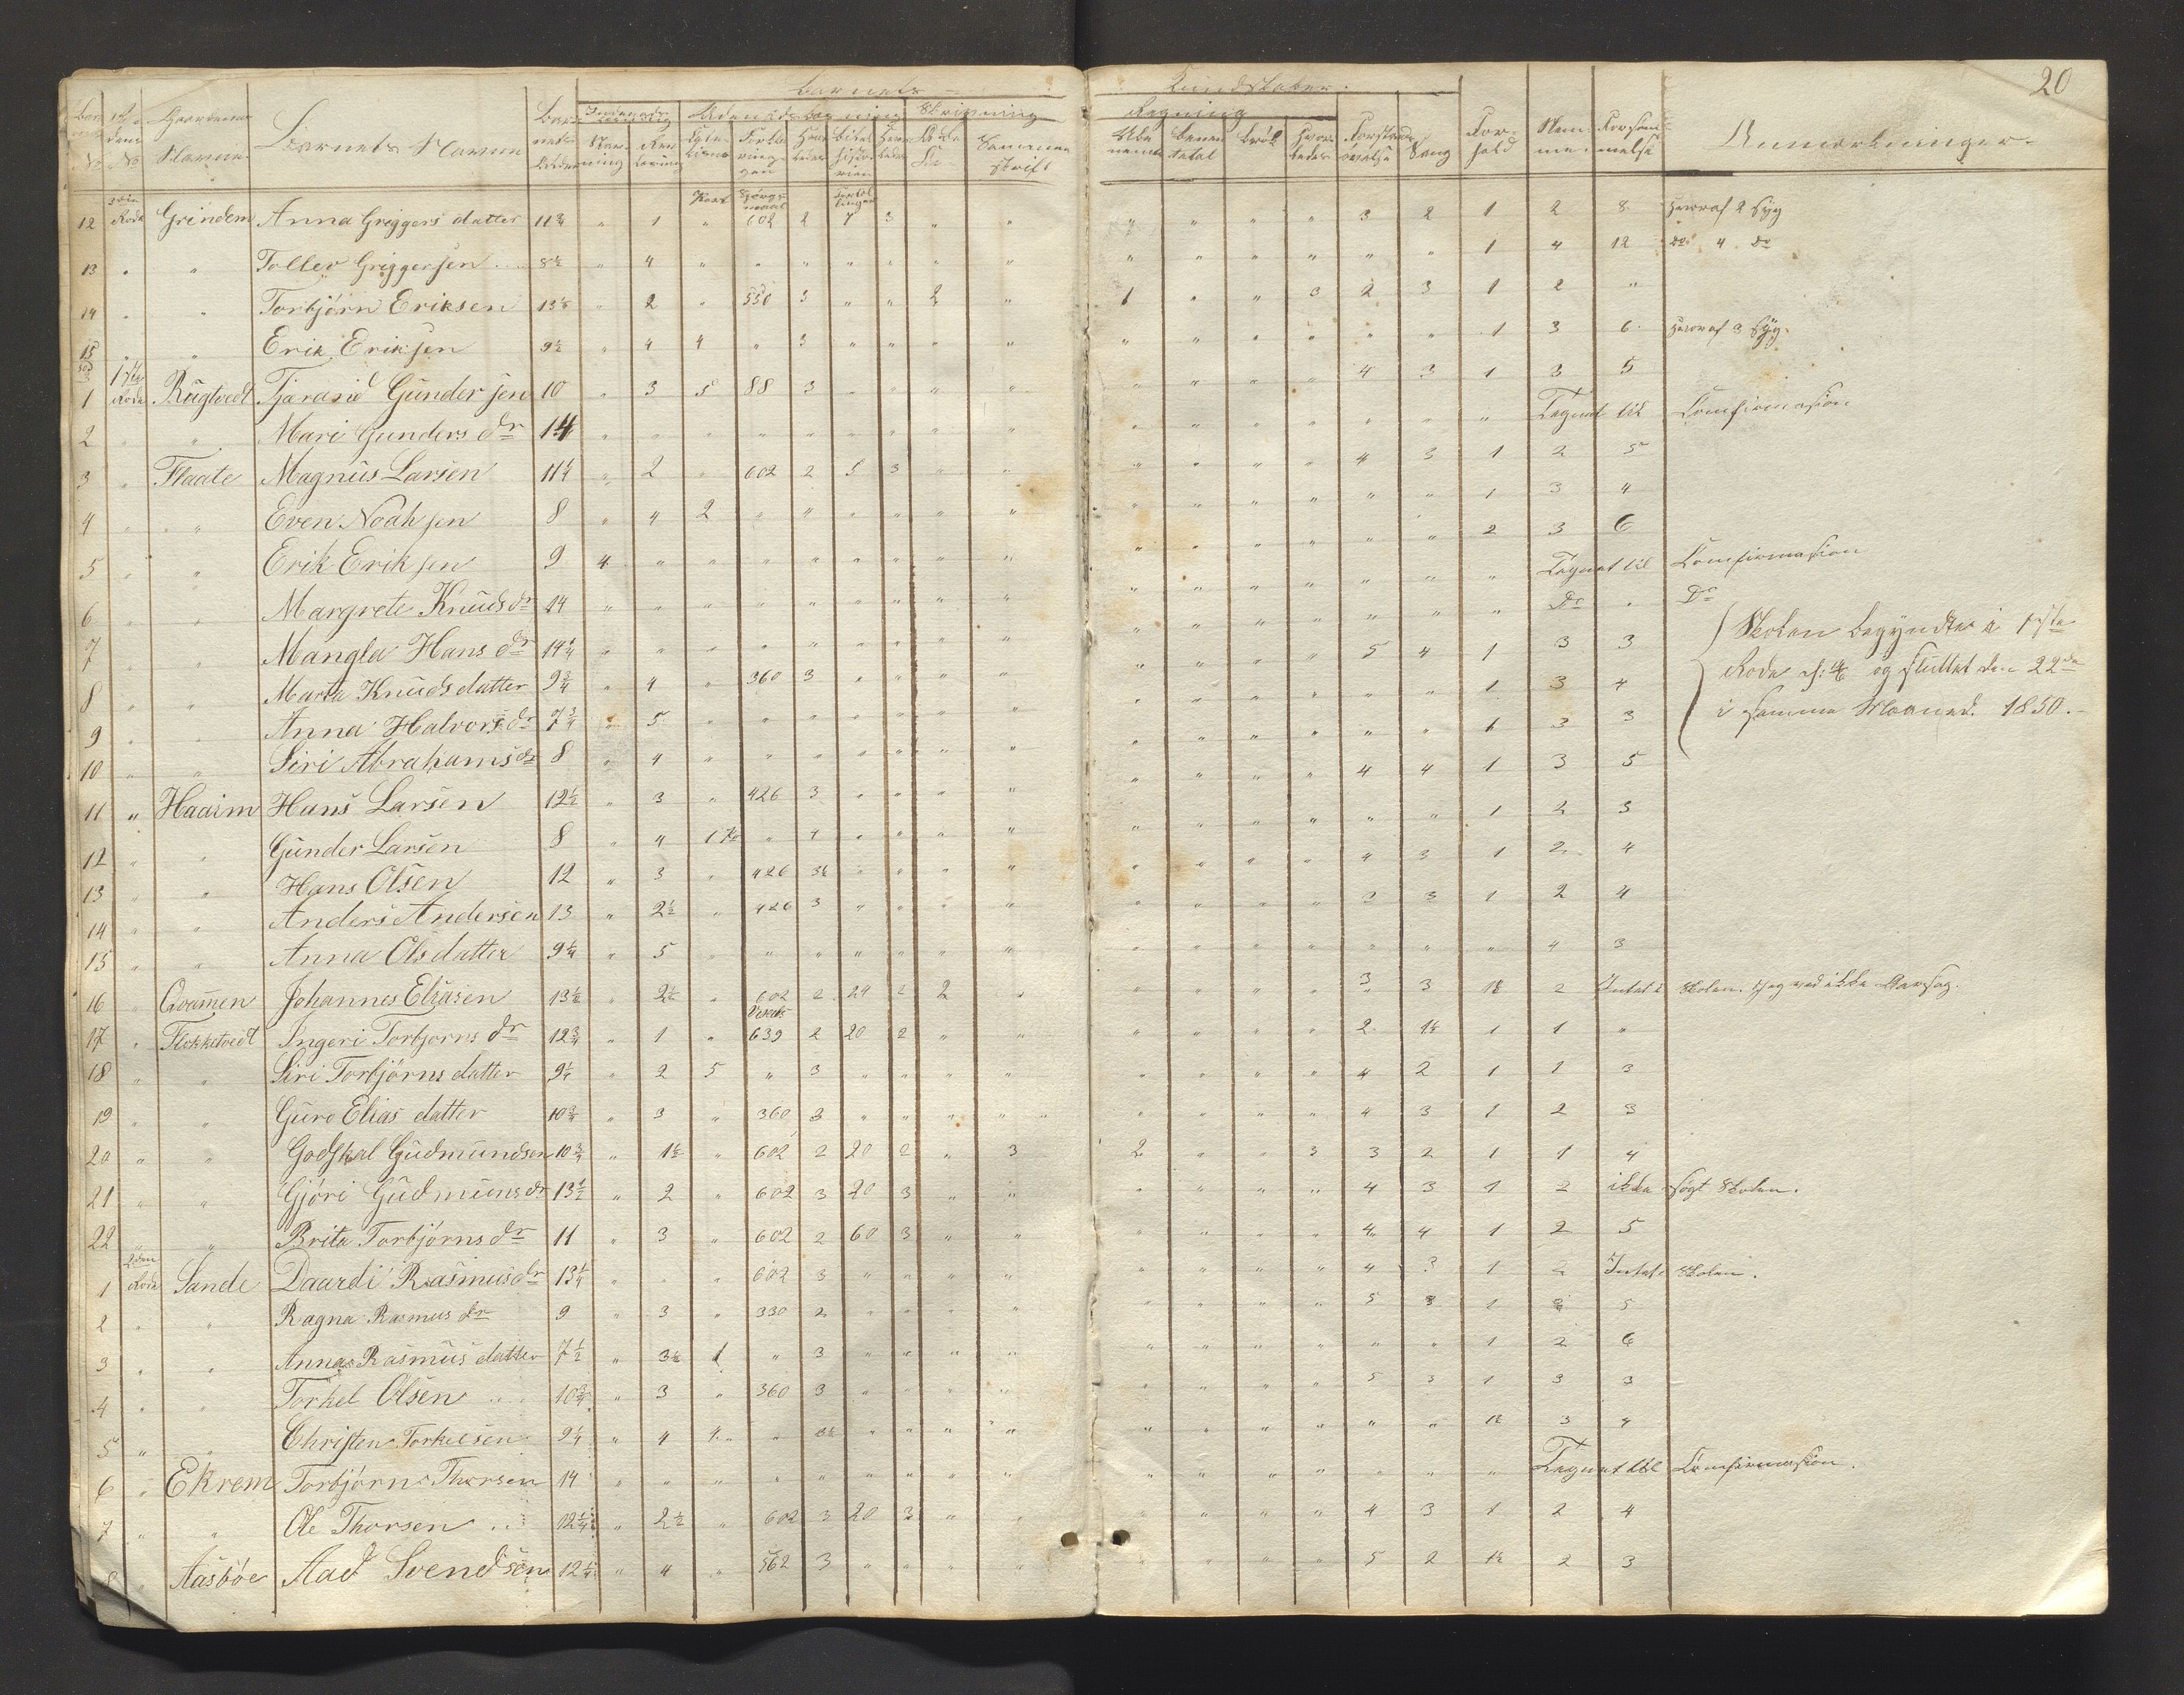 20
Barnets Kundskaber.
Gaardenes Navne Barnets Navne Barnets Alder Indenadslæsning Udenadslæsning Skrivning Regning Sang Forhold Nemme Forsømmelse Anmærkninger
12 3die Rode Grindem Anna Griggers datter 11¾ " 1 " 602 2 7 3 " " " " " " 3 2 1 2 8 hvoraf 2 Syg
13 " " Tollev Griggersen 8½ " 4 " " " " " " " " " " " " " 1 4 12 do 4 do
14 " " Torbjörn Eriksen " 2 " 550 3 " " 2 " 1 " " 3 2 3 1 2 "
15 " " Erik Eriksen 9½ " 4 4 " 3 " " " " " " " " " " 1 3 6 hvoraf 3 Syg.
1 1ste Rode Rügtvedt Tjarand Gundersen 10 " 3 5 88 3 " " " " " " " " 4 3 1 3 5
2 " " Mari Gunders dr 14 " " " " " " " " " " " " " " " " Tegnet til Comfirmasion
3 " Flaate Magnüs Larsen 11¼ " 2 " 602 2 5 3 " " " " " " 4 3 1 2 5
4 " " Even Noahsen 8 " 4 2 " " " " " " " " " " " " 1 3 4
5 " " Erik Eriksen 9 4 " " " " " " " " " " " " " " 2 3 6
6 " " Margrete Knüds dr 14 " " " " " " " " " " " " " " " " Tegnet til Comfirmasion
7 " " Mangla Hans dr 14¼ " " " " " " " " " " " " " " " " Do " Do
8 " " Marta Knüds datter 9¾ " 4 " 360 3 " " " " " " " " 5 4 1 3 3 Skolen begyndte i 1ste
9 " " Anna Halvors dr 7¾ " 5 " " " " " " " " " " " " " 1 3 4 Rode og sluttet den 22de
10 " " Siri Abrahams dr 8 " 4 " " " " " " " " " " " " " 1 3 3 i samme Maaned. 1850.
11 " Haaim Hans Larsen 12½ " 3 " 426 3 " " " " " " " " 4 4 1 3 5
12 " " Günder Larsen 8 " 4 " 4 " " " " " " " " " " 1 2 3
13 " " Hans Olsen 12 " 3 " 426 3½ " " " " " " " " 4 3 1 2 4
14 " " Anders Andersen 13 " 2½ " 426 3 " " " " " " " " 3 3 1 2 4
15 " " Anna Ols datter 9¼ " 5 " " " " " " " " " " " " " " 4 3
16 " Qvamen Johannes Eliasen 13½ " 2½ " 602 2 24 2 2 " " " " " 3 3 1½ 2 Intet i Skolen. Jeg ved ikke Aarsag.
17 " Flokketvedt Ingeri Torbjorns dr 12¾ " 1 " 639 2 20 2 " " " " " " 2 1½ 1 1 "
18 " " Siri Torbjörns datter 9¼ " 2 5 " 3 " " " " " " " " 4 2 1 1 3
19 " " Guro Elias datter 10¾ " 3 " 360 3 " " " " " " " " 4 3 1 2 3
20 " " Godskal Güdmundsen 10¾ " 1½ " 602 2 20 2 " 3 2 " " 3 3 2 1 1 4
21 " " Gjöri Güdmuns dr 13½ " 2 " 602 3 20 3 " " " " " " 4 3 1 2 ikke søgt Skolen.
22 " " Brita Torbjörns dr 11 " 3 " 602 2 60 3 " " " " " " 4 4 1 2 5
1 2den Rode Sande Daardi Rasmus dr 13¼ " " " 602 3 " " " " " " " " 4 3 1 2 Intet i Skolen.
2 " " Ragna Rasmus dr 9 " 3 " 330 2 " " " " " " " " 5 3 1 3 5
3 " " Anna Rasmüs datter 7½ " 3½ 1 " 3 " " " " " " " " " " 1 2 6
4 " " Torkel Olsen 10¾ " 3 " 360 3 " " " " " " " " 5 3 1 3 3
5 " " Christen Torkelsen 9¼ " 4 4 " 3½ " " " " " " " " " " 1½ 3 4
6 " Ekrem Torbjörn Thorsen 14 " " " " " " " " " " " " " " " " Tegnet til Comfirmasion.
7 " " Ole Thorsen 12¼ " 2½ " 602 3 20 3 " " " " " " 4 3 1 2 4
8 " Aasböe Aad Svendsen 12¼ " 4 " 562 3 " " " " " " " " 5 2 1½ 2 3